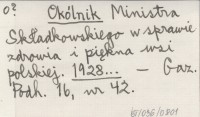 o? Okólnik Ministra
Składkowskiego w sprawie
zdrowia i piękna wsi
polskiej. 1928... — Gaz.
Podh. 16, nr 42.